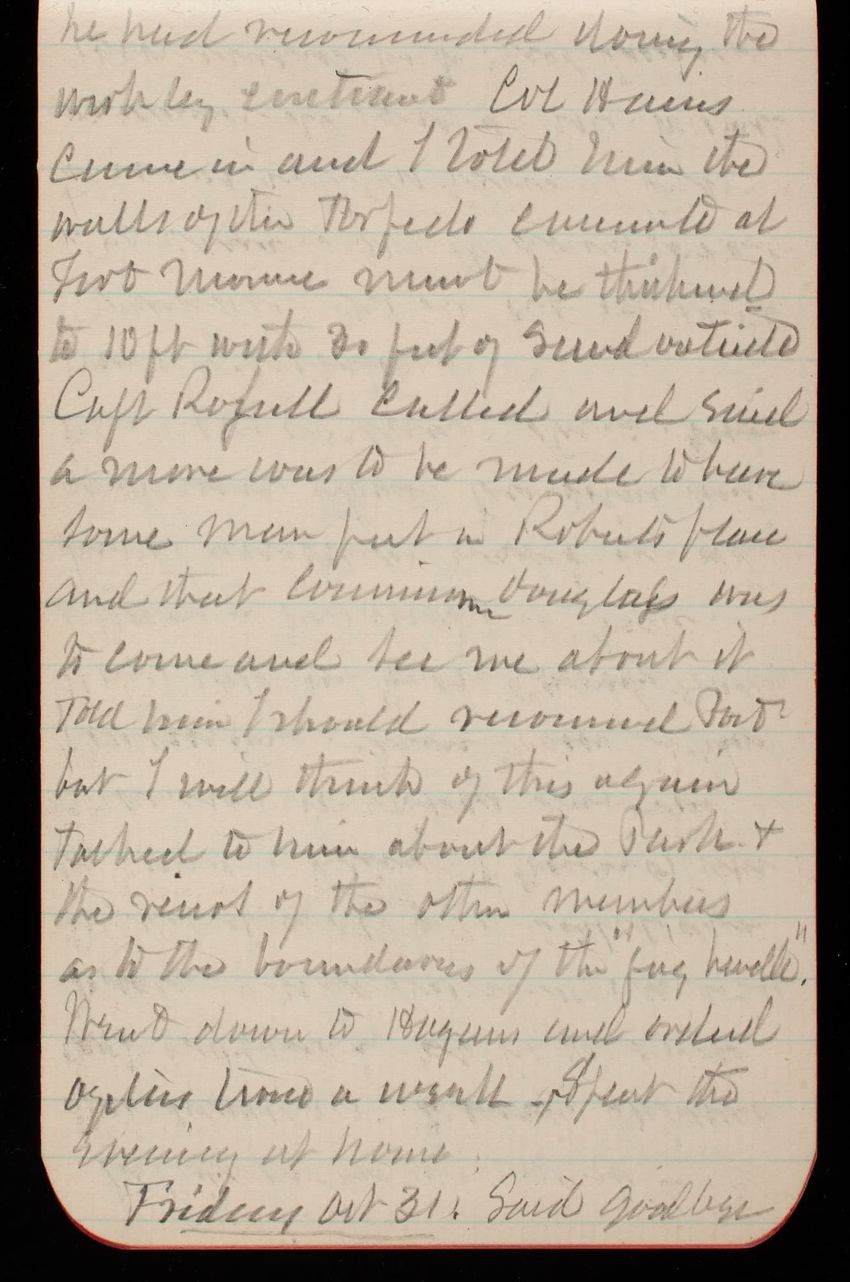 he had recommended doing the
work by contract Col Hains
came in and I told him the
walls of the Torpedo casemate at
Fort Monroe must be thickened
to 10 ft with 30 feet of sand outside
Capt Rossell called and said
a move was to be made to have
some man put in Roberts place
and that Commissioner Douglass was
to come and see me about it
Told him I should recommend
but I will think of this again
talked to him about the Park +
the views of the other members
as to the boundaries of the "
Went down to and ordered
oysters twice a week - Spent the
evening at home.
Friday Oct 31. Said goodbye